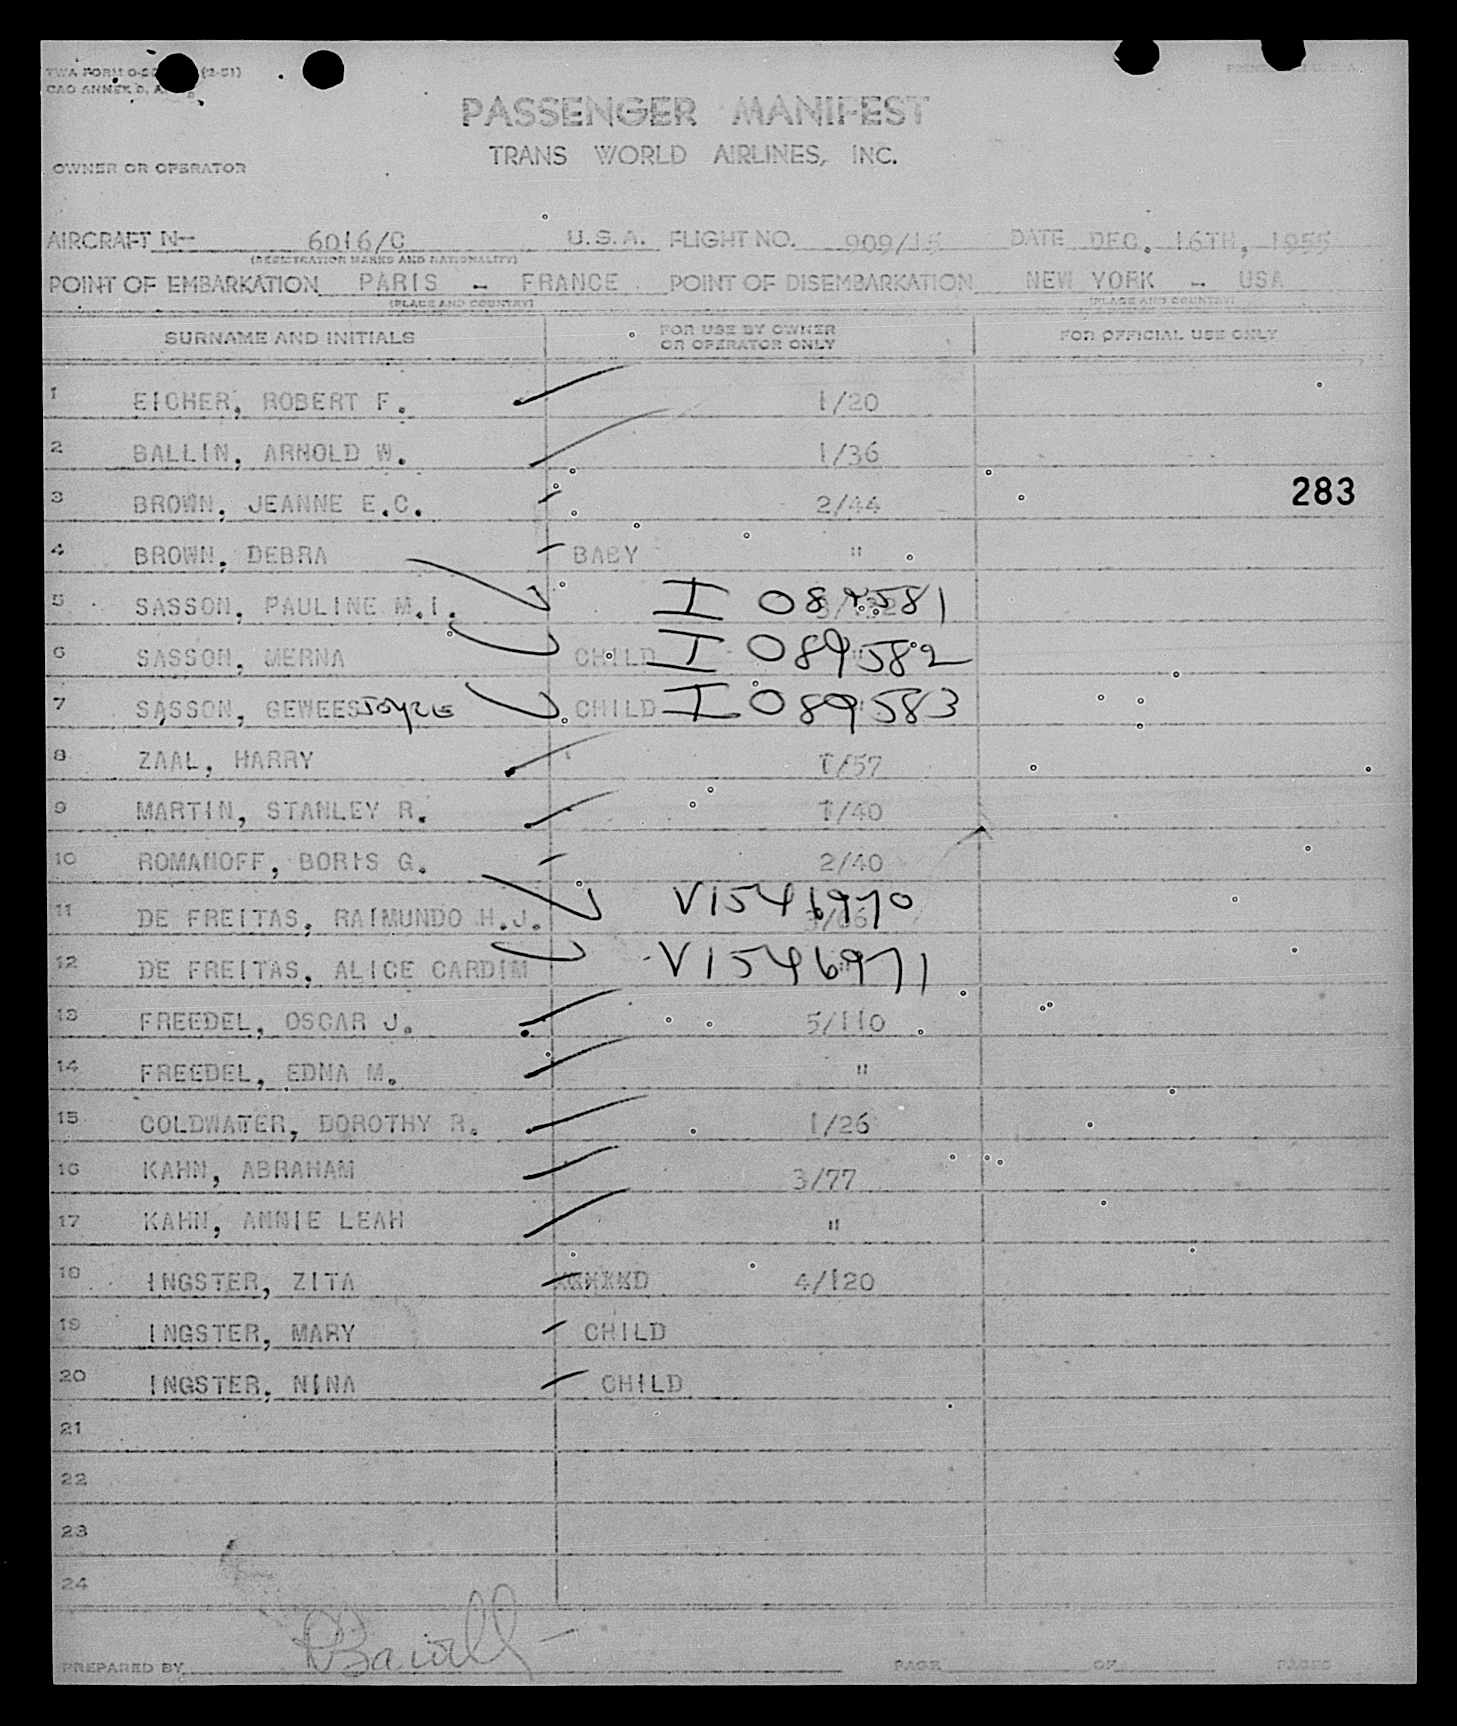 TWA FORM O-
CAO ANNEX 9, A
PRINTED IN U.S.A.
PASSENGER MANIFEST
TRANS WORLD AIRLINES, INC.
OWNER OR OPERATOR
AIRCRAFT N- 6016/C U.S.A. FLIGHT NO. 909/15 DATE DEC. 16TH, 1955
(REGISTRATION MARKS AND NATIONALITY)
POINT OF EMBARKATION PARIS - FRANCE POINT OF DISEMBARKATION NEW YORK - USA
(PLACE AND COUNTRY) (PLACE AND COUNTRY)
SURNAME AND INITIALS FOR USE BY OWNER OR OPERATOR ONLY FOR OFFICIAL USE ONLY
1 EICHER, ROBERT F. 1/20
2 BALLIN, ARNOLD W. 1/36
3 BROWN, JEANNE E.C. 2/44 283
4 BROWN, DEBRA BABY "
5 SASSON, PAULINE M.I. I 089581
6 SASSON, MERNA CHILD I 089582
7 SASSON, GEWEES JOYCE CHILD I 089583
8 ZAAL, HARRY 1/57
9 MARTIN, STANLEY R. 1/40
10 ROMANOFF, BORIS G. 2/40
11 DE FREITAS, RAIMUNDO H.J. V1546970
12 DE FREITAS, ALICE CARDIM V1546971
13 FREEDEL, OSCAR J. 5/110
14 FREEDEL, EDNA M. "
15 COLDWATER, DOROTHY R. 1/26
16 KAHN, ABRAHAM 3/77
17 KAHN, ANNIE LEAH "
18 INGSTER, ZITA 4/120
19 INGSTER, MARY CHILD
20 INGSTER, NINA CHILD
21
22
23
24
PREPARED BY PAGE OF PAGES